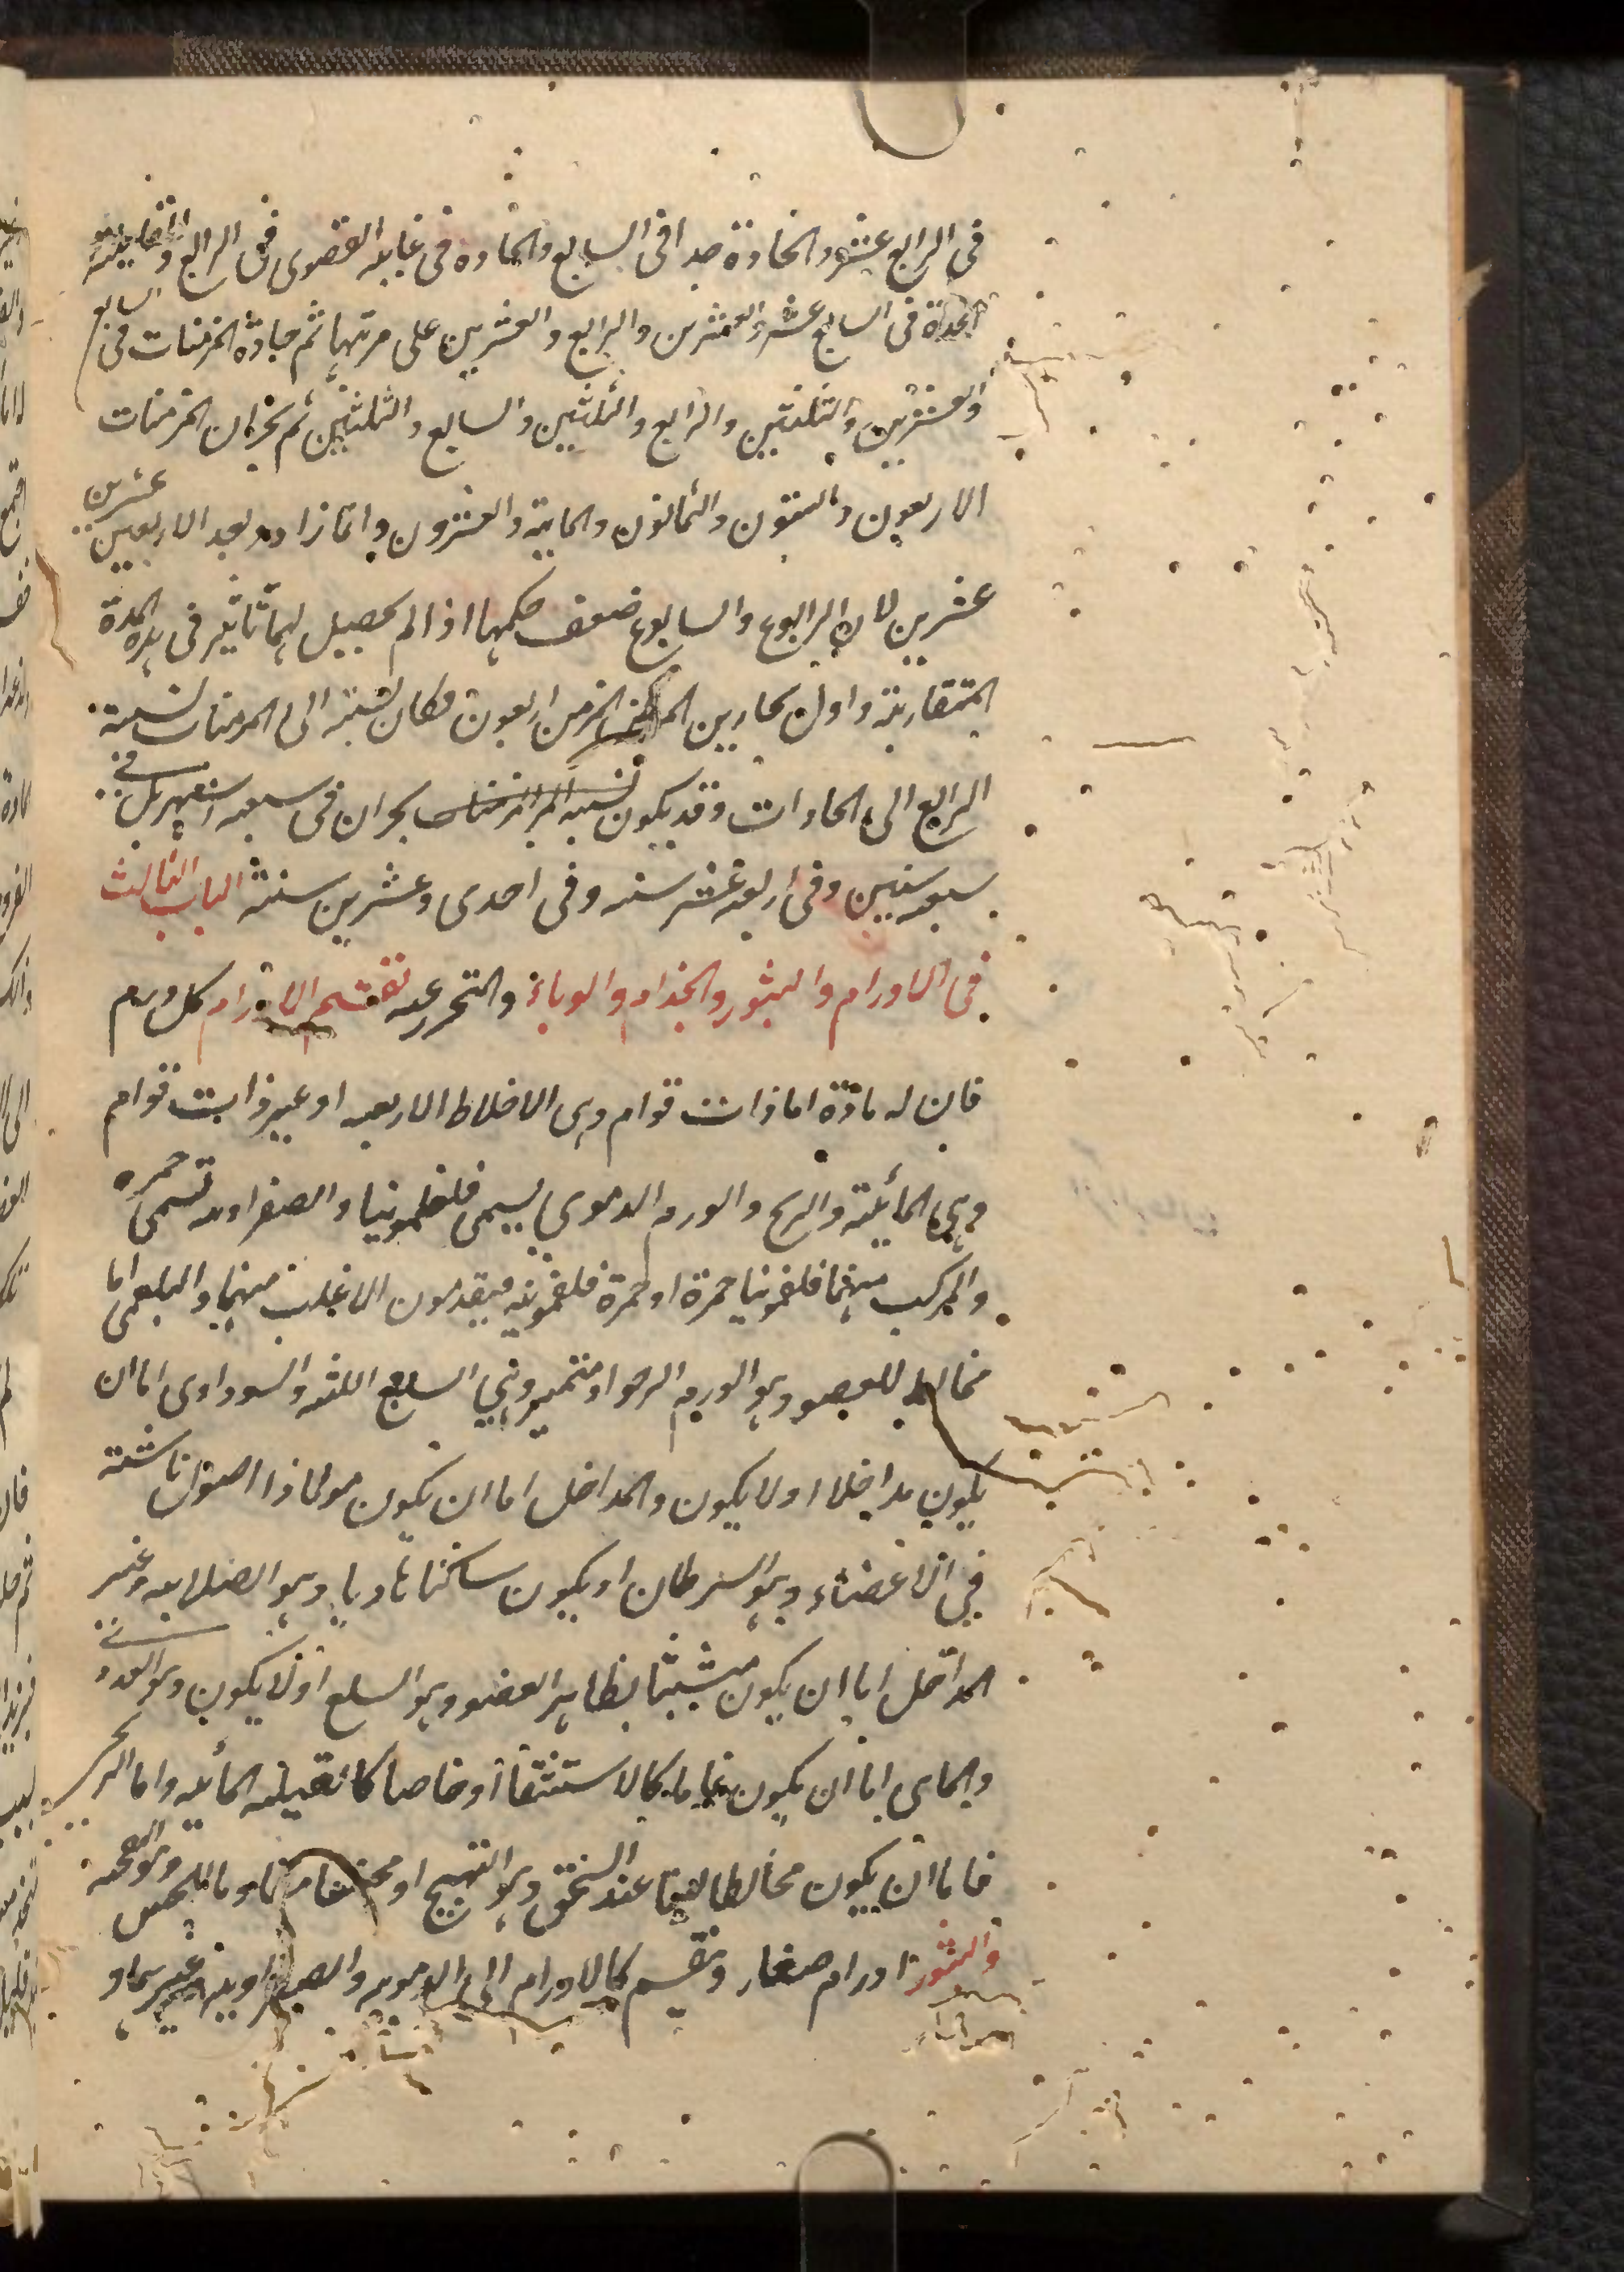 فى الرابع عشر والحادة جدا فى السابع والحادة فى غاية القصوى فى الرابع والقليلة
الحدة فى السابع عشر والعشرين والرابع والعشرين على مرتبتها ثم حادة المزمنات فى السابع
والعشرين والثلثين والرابع والثلثين والسابع والثلثين ثم بحران المزمنات
الاربعون والستون والثمانون والماية والعشرون وانما زادوا بعد الاربعين عشرين
عشرين لان الرابوع والسابوع ضعف حكمها اذا لم يحصل لهما تاثير فى هذه المدة
المتقاربة واول بحارين المرض المزمن اربعون فكان نسبته الى المزمنات نسبة
الرابع الى الحادات وقد يكون نسبة المزمنات بحران فى سبعة اشهر بل فى
سبع سنين وفى اربعة عشر سنة وفى احدى وعشرين سنة الباب الثالث
فى الاورام والبثور والجذام والوباء والتحرز عنه تقسيم الاورام كل ورم
فان له مادة اما ذات قوام وهى الاخلاط الاربعة او غير ذات قوام
وهى المائية والريح والورم الدموى يسمى فلغمونيا والصفراوية تسمى حمرة
والمركب منهما فلغمونيا حمرة او حمرة فلغمونية فيقدمون الاغلب منهما والبلغمى اما
مخالط للعضو وهو الورم الرخو او متميز وهى السلع اللينة والسوداوى اما ان
يكون مداخلا او لا يكون والمداخل اما ان يكون مولما ذا اصول ناشئة
فى الاعضاء وهو السرطان او يكون ساكنا هاديا وهو الصلابة وغير
المداخل اما ان يكون متشبثا بظاهر العضو وهو السلع او لا يكون وهو الغدد
والمائى اما ان يكون عاما كالاستسقا او خاصا كالقيلة المائية واما الريحى
فاما ان يكون مخالطا لينا عند السحق وهو التهيج او مجتمعا مقاوما للجس وهو النفخة
والبثور اورام صغار وتقسم كالاورام الى الدموية والصفراوية وغيرهما و